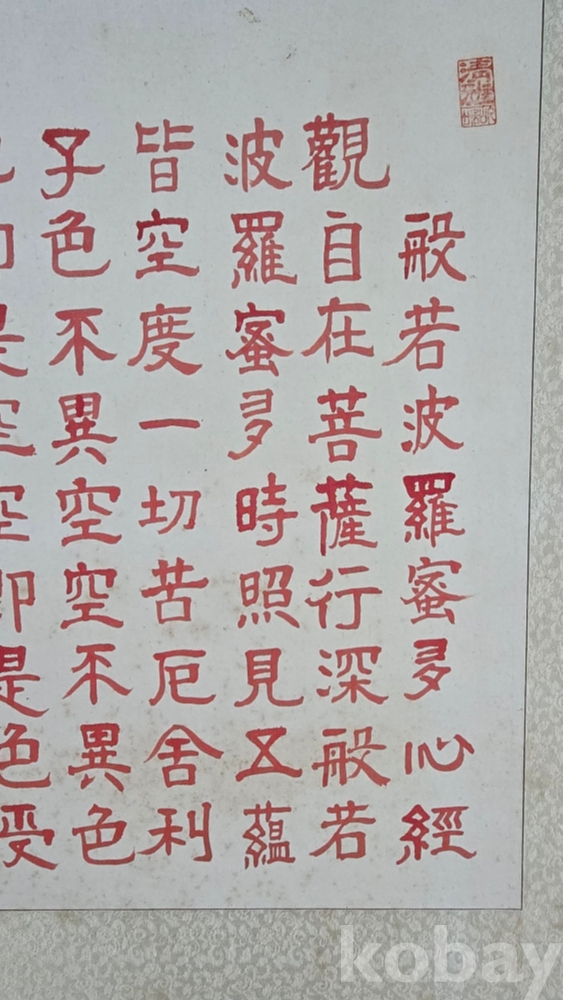 般若波羅蜜多心經
觀自在菩薩行深般若
波羅蜜多時照見五蘊
皆空度一切苦厄舍利
子色不異空空不異色
是空空即是色受
kobay